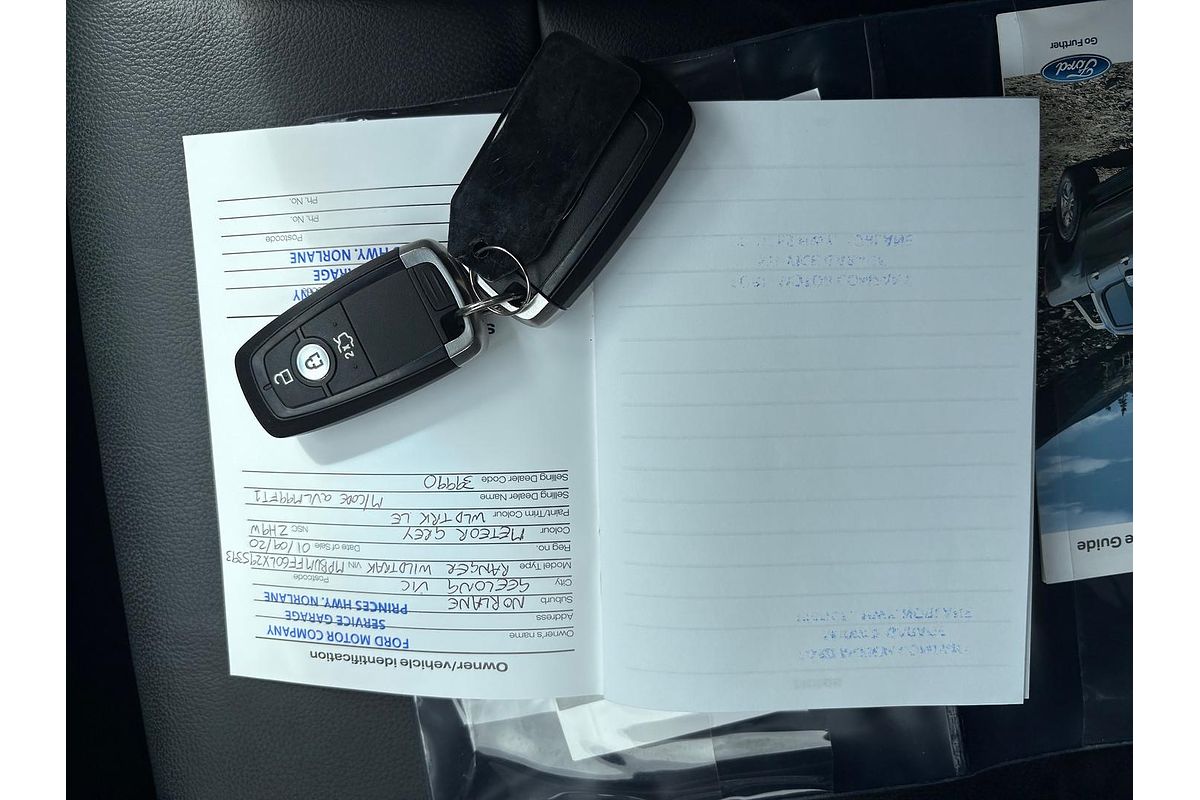 Owner/vehicle identification
Owner's name FORD MOTOR COMPANY
Address SERVICE GARAGE
PRINCES HWY. NORLANE
Suburb NORLANE
City GEELONG VIC Postcode
Model Type RANGER WILDTRAK VIN
Reg no. Date of Sale 01/09/20
Colour METEOR GREY NSC ZH9W
Paint/Trim Colour WLDTRK LE
Selling Dealer Name M/CODE
Selling Dealer Code 39990
HWY. NORLANE
Postcode
Ph. No.
Ph. No.
2X
Ford
Go Further
Guide